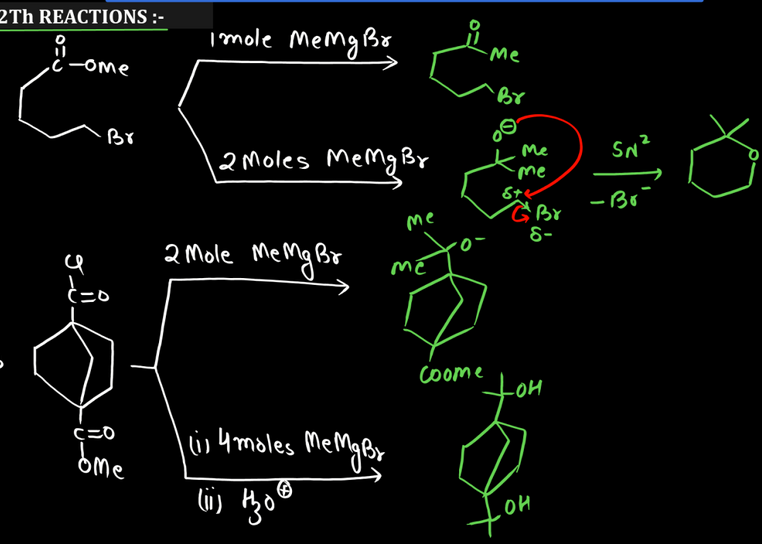 2Th REACTIONS :-
O
C-OMe
Br
1mole MeMgBr
O
Me
Br
2Moles MeMgBr
O⊖
Me
Me
δ+
Br
δ-
SN²
-Br⁻
O
Cl
C=O
C=O
OMe
2Mole MeMgBr
Me
Me
O⁻
COOMe
(i) 4moles MeMgBr
(ii) H₃O⊕
OH
OH